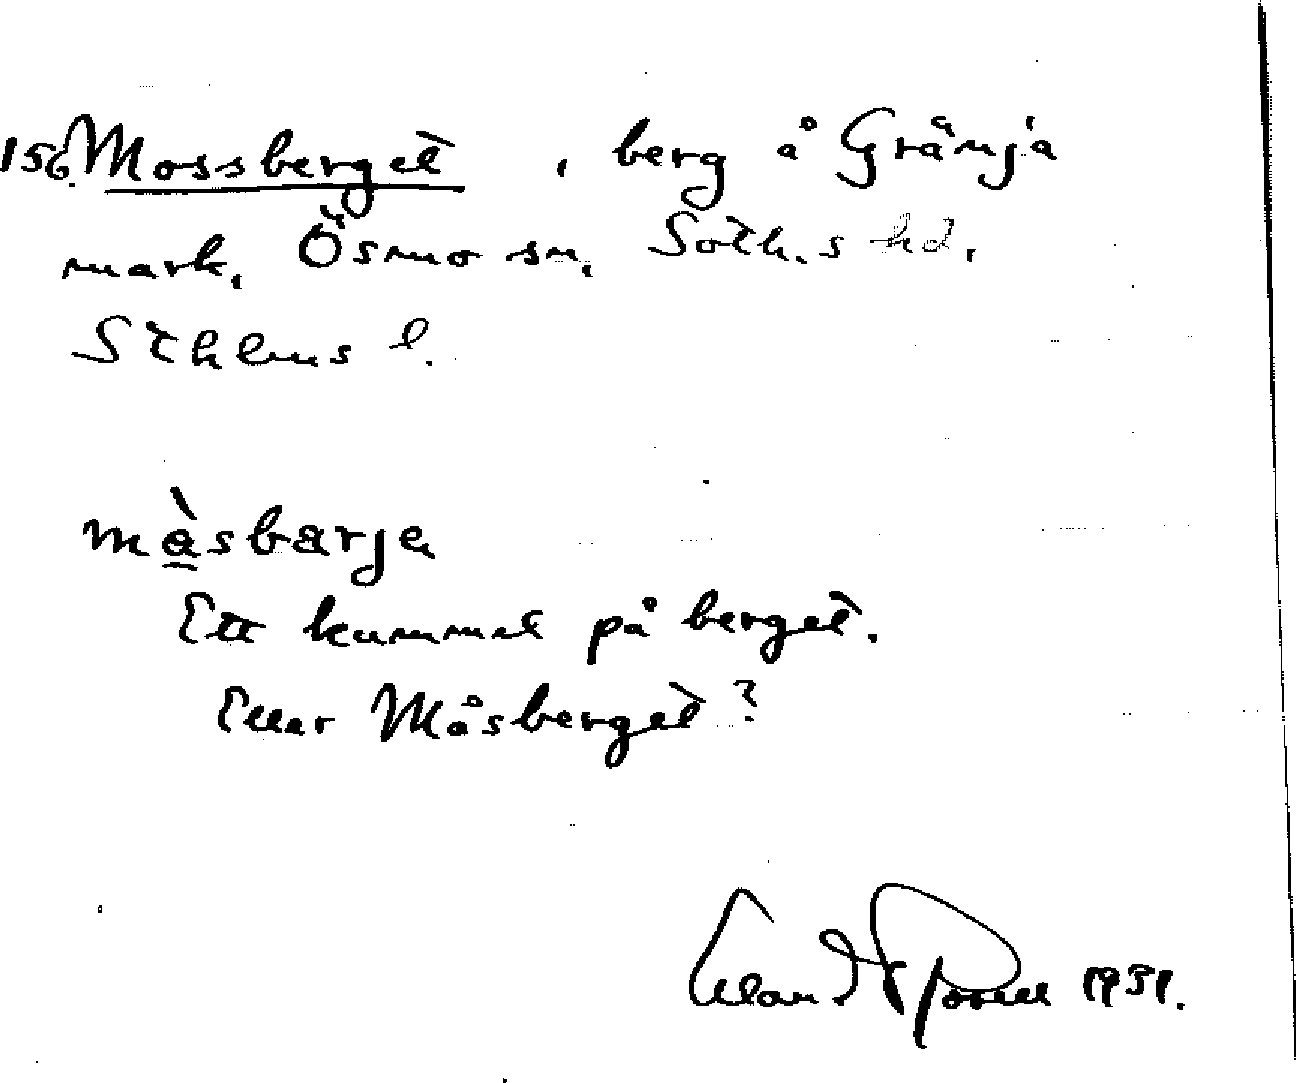 156. Mossberget, berg å Gränja
mark, Ösmo sn, Soth.s hd,
Sthlms l.
må̀sbarje
Ett kummel på berget.
Eller Måsberget?
1931.